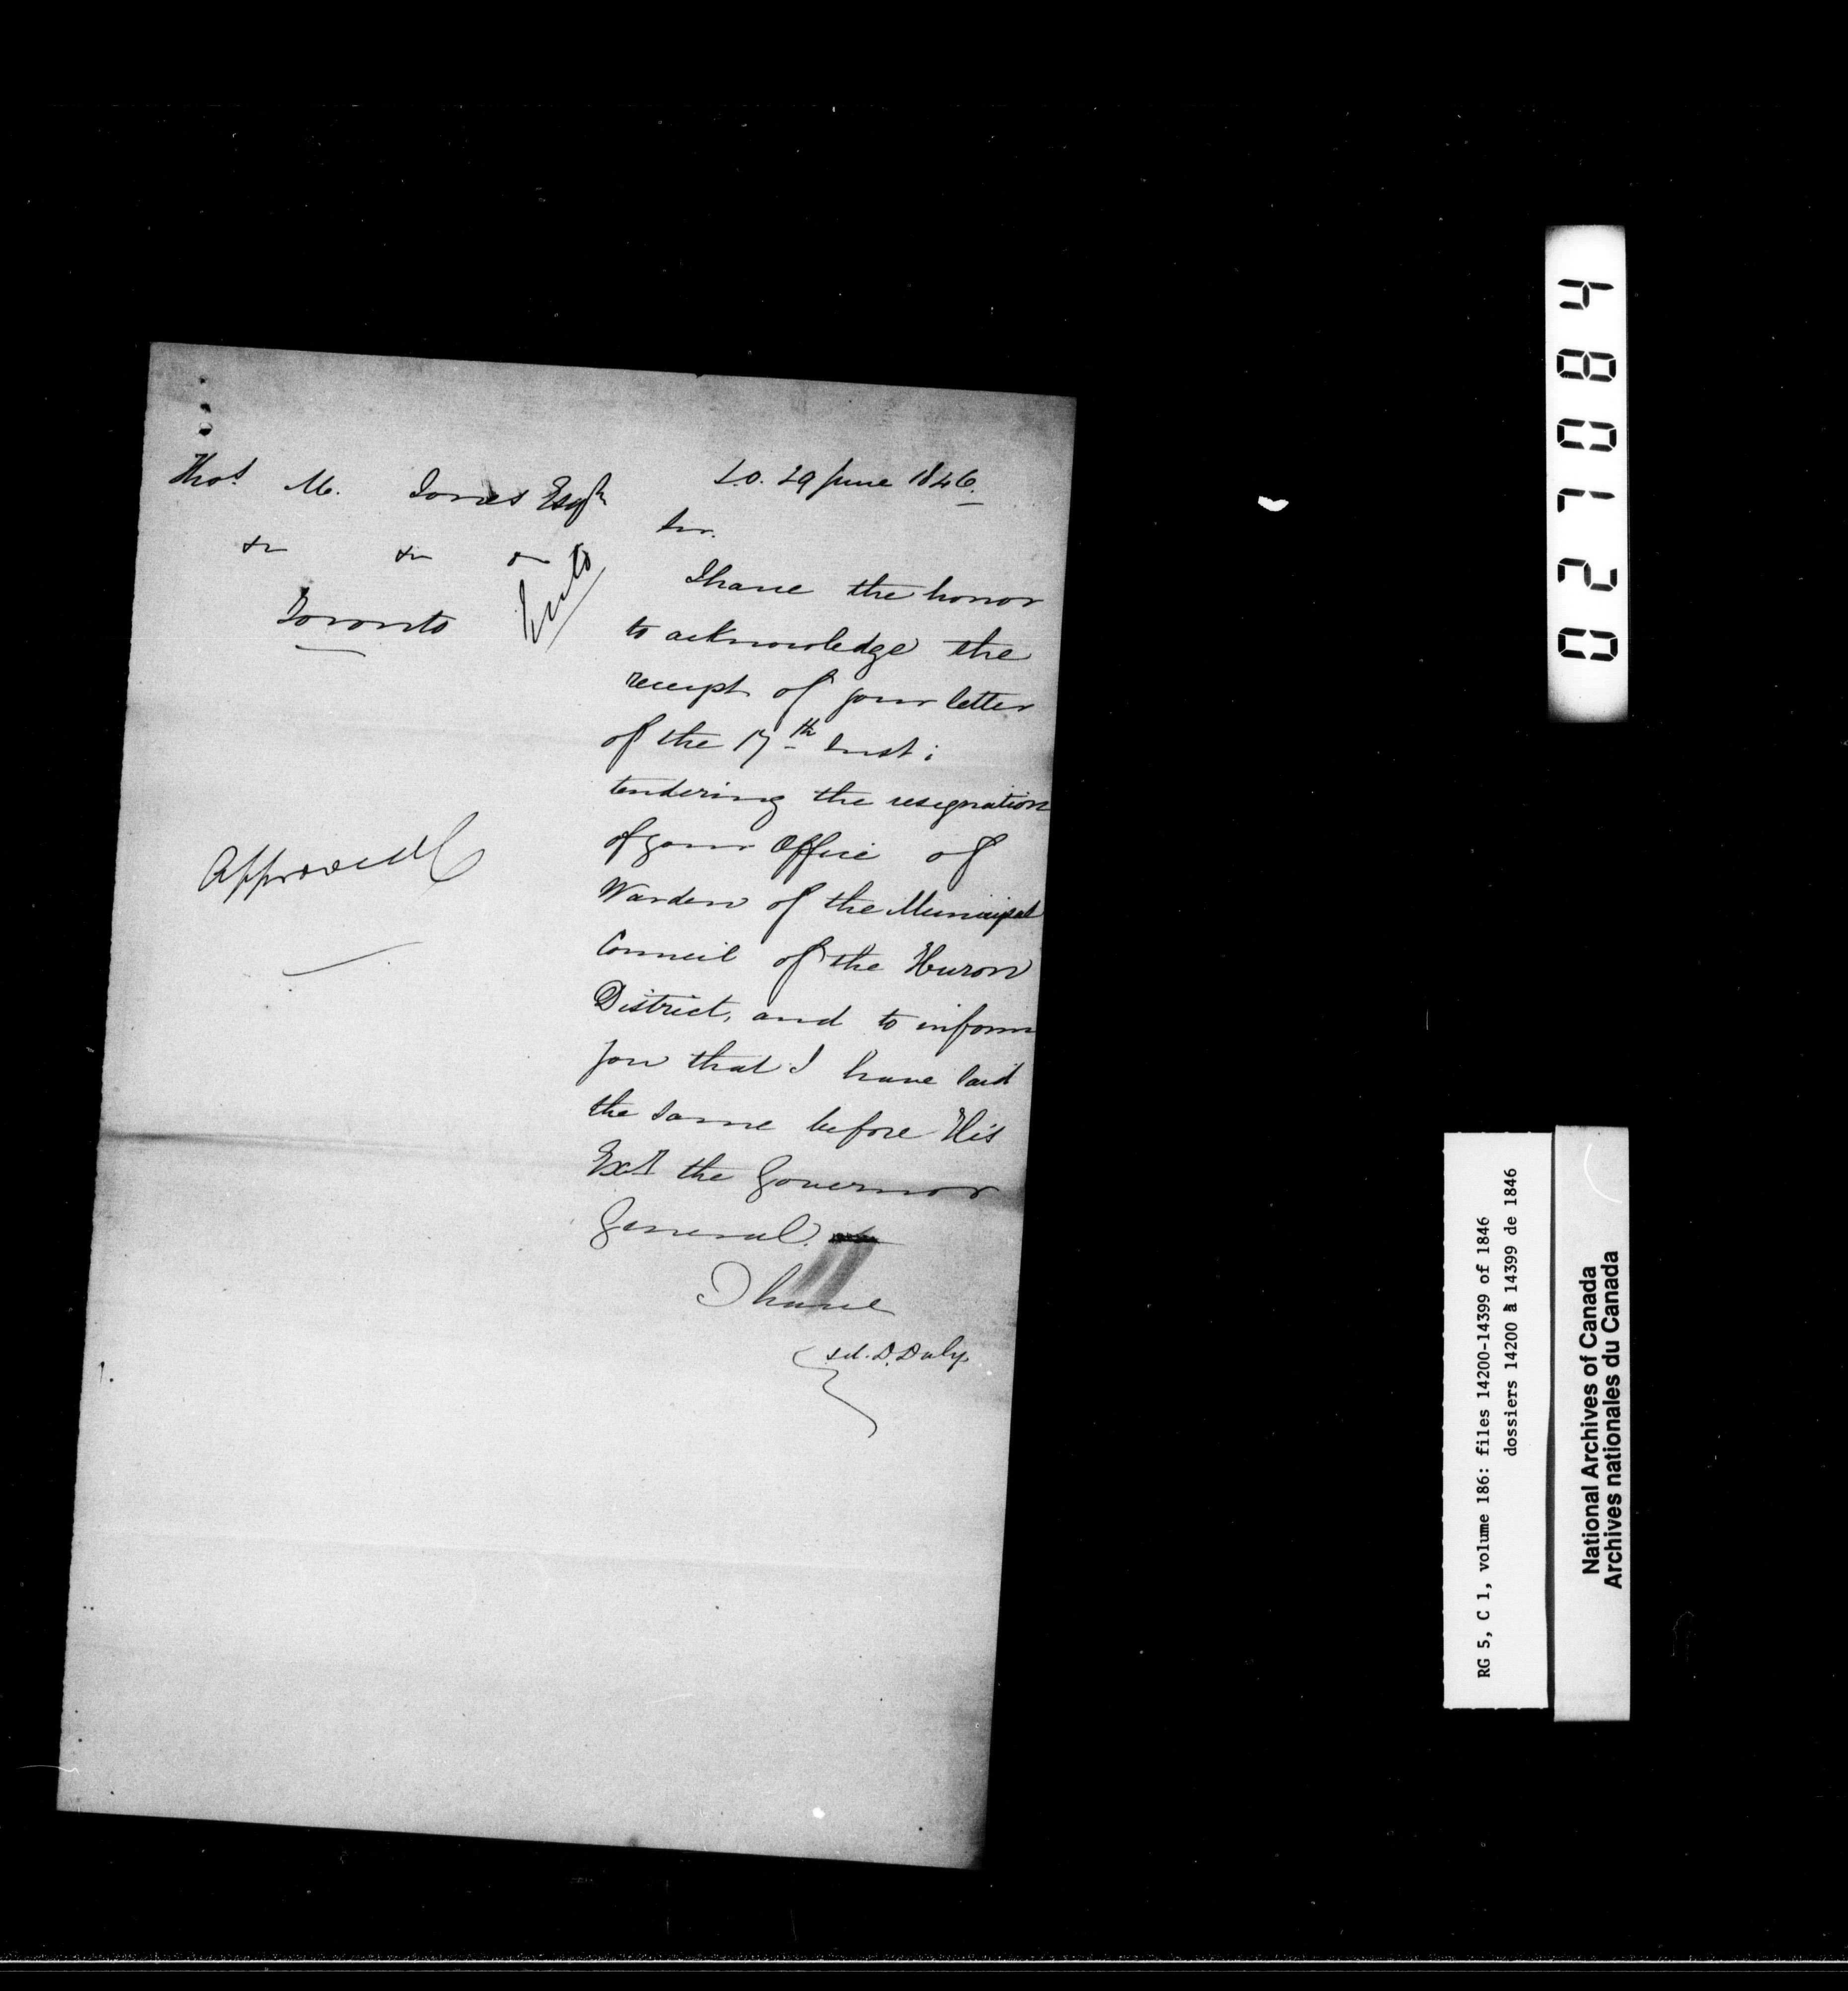 Thos. M. Jones Esqr
&c &c &c
Toronto
Approved
S.O. 29 June 1846.
Sir.
I have the honor
to acknowledge the
receipt of your letter
of the 17th Inst:
tendering the resignation
of your Office of
Warden of the Municipal
Council of the Huron
District, and to inform
you that I have laid
the same before His
Excy the Governor
General.
I have
sd. D. Daly
027084
RG 5, C 1, volume 186: files 14200-14399 of 1846
dossiers 14200 à 14399 de 1846
National Archives of Canada
Archives nationales du Canada